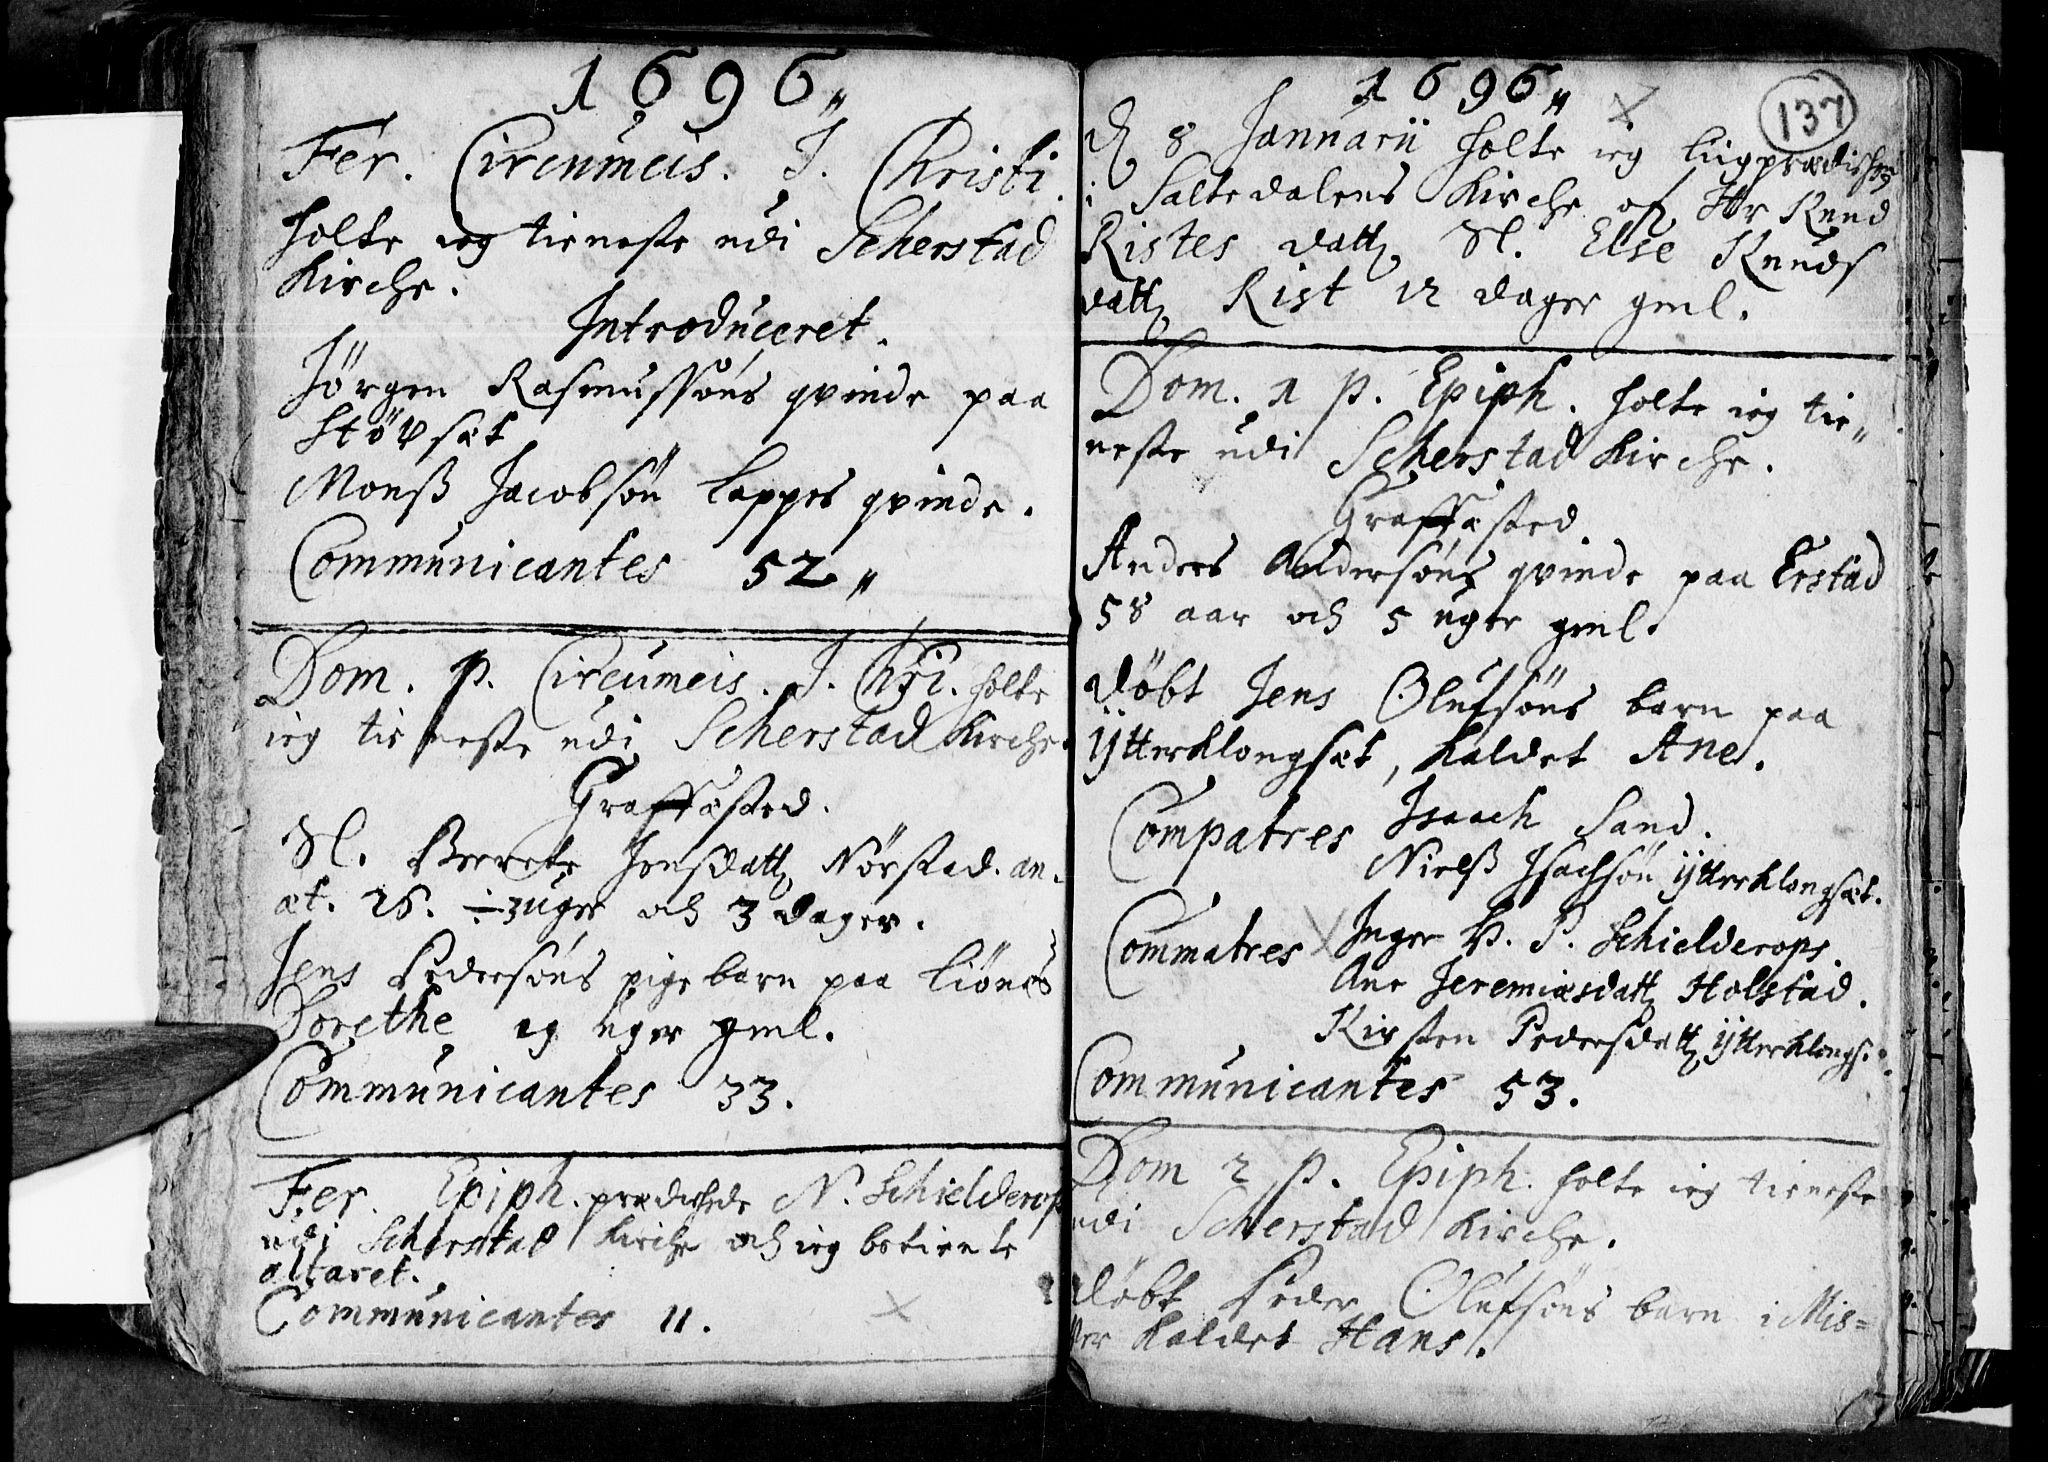 1696„
Fer. Circumcis. J. Christi.
holte ieg tieneste udi Scherstad
Kirche.
Introduceret.
Jörgen Rasmussöns qvinde paa
Störset
Monß Jacobsön Lappes qvinde.
Communicantes 52„
Dom. p. Circumcis. J. Chri. holte
ieg tieneste udi Scherstad Kirche.
Graffæsted.
Sl. Berete Jensdatt Nörstad. an.
æt. 26. ÷ 3 uger och 3 dager.
Jens Pedersöns pigebarn paa Liönes
Dorethe 19 uger gml.
Communicantes 33.
Fer. Epiph. prædichede N. Schielderop
udi Scherstad Kirche och ieg betiente
altaret.
Communicantes 11.
1696„
137
d 8 Januarii holte ieg Liigprædichen
i Saltedalens Kirche of Hr Knud
Ristes datt Sl. Else Knuds
datt Rist 12 dager gml.
Dom. 1 p. Epiph. holte ieg tie„
neste udi Scherstad Kirche.
Graffæsted
Anders Andersöns qvinde paa Erstad
58 aar och 5 uger gml.
döbt Jens Olufsöns barn paa
ÿtterklongset, kaldet Ane.
Compatres Isaach Sand.
Nielß Isachsön ÿtterklongset.
Commatres Inger H. P. Schielderops.
Ane Jeremiæsdatt Holstad.
Kirsten Pedersdatt ÿtterklongs.
Communicantes 53.
Dom 2 p. Epiph. holte ieg tieneste
udi Scherstad Kirche.
döbt Peder Olufsöns barn i Mis=
vær kaldet Hans.